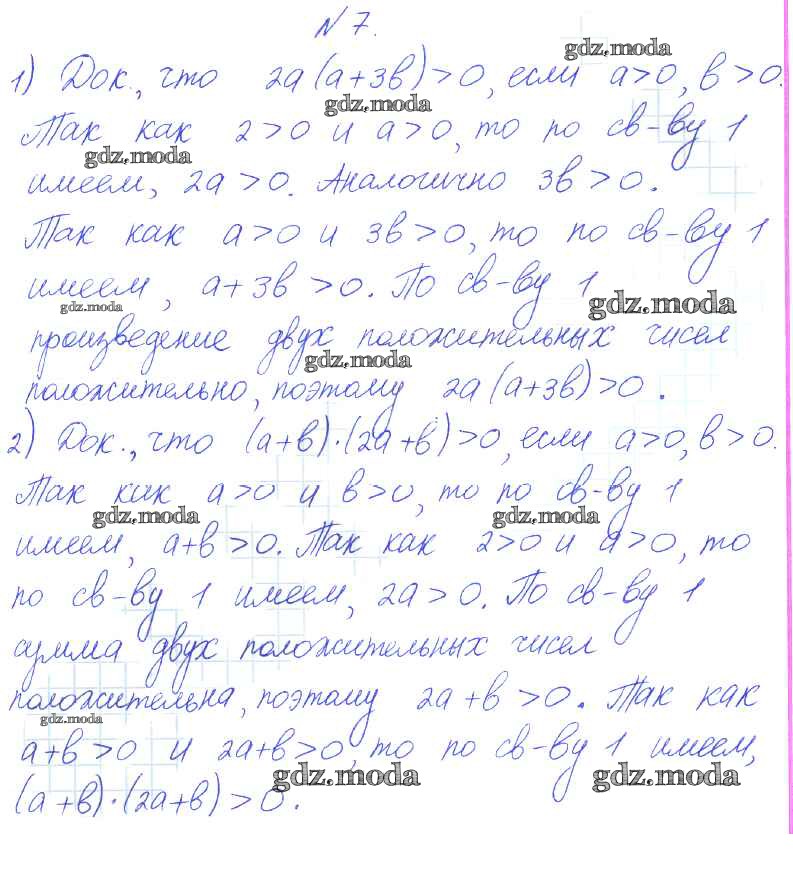 N 7.
gdz.moda
1) Док., что 2a(a+3в)>0, если a>0, в>0.
gdz.moda
Так как 2>0 и a>0, то по св-ву 1
gdz.moda
имеем, 2a>0. Аналогично 3в>0.
Так как a>0 и 3в>0, то по св-ву 1
имеем, a+3в>0. По св-ву 1
gdz.moda gdz.moda
произведение двух положительных чисел
gdz.moda
положительно, поэтому 2a(a+3в)>0.
2) Док., что (a+в)·(2a+в)>0, если a>0, в>0.
Так как a>0 и в>0, то по св-ву 1
gdz.moda gdz.moda
имеем, a+в>0. Так как 2>0 и a>0, то
по св-ву 1 имеем, 2a>0. По св-ву 1
сумма двух положительных чисел
положительна, поэтому 2a+в>0. Так как
gdz.moda
a+в>0 и 2a+в>0, то по св-ву 1 имеем,
gdz.moda gdz.moda
(a+в)·(2a+в)>0.